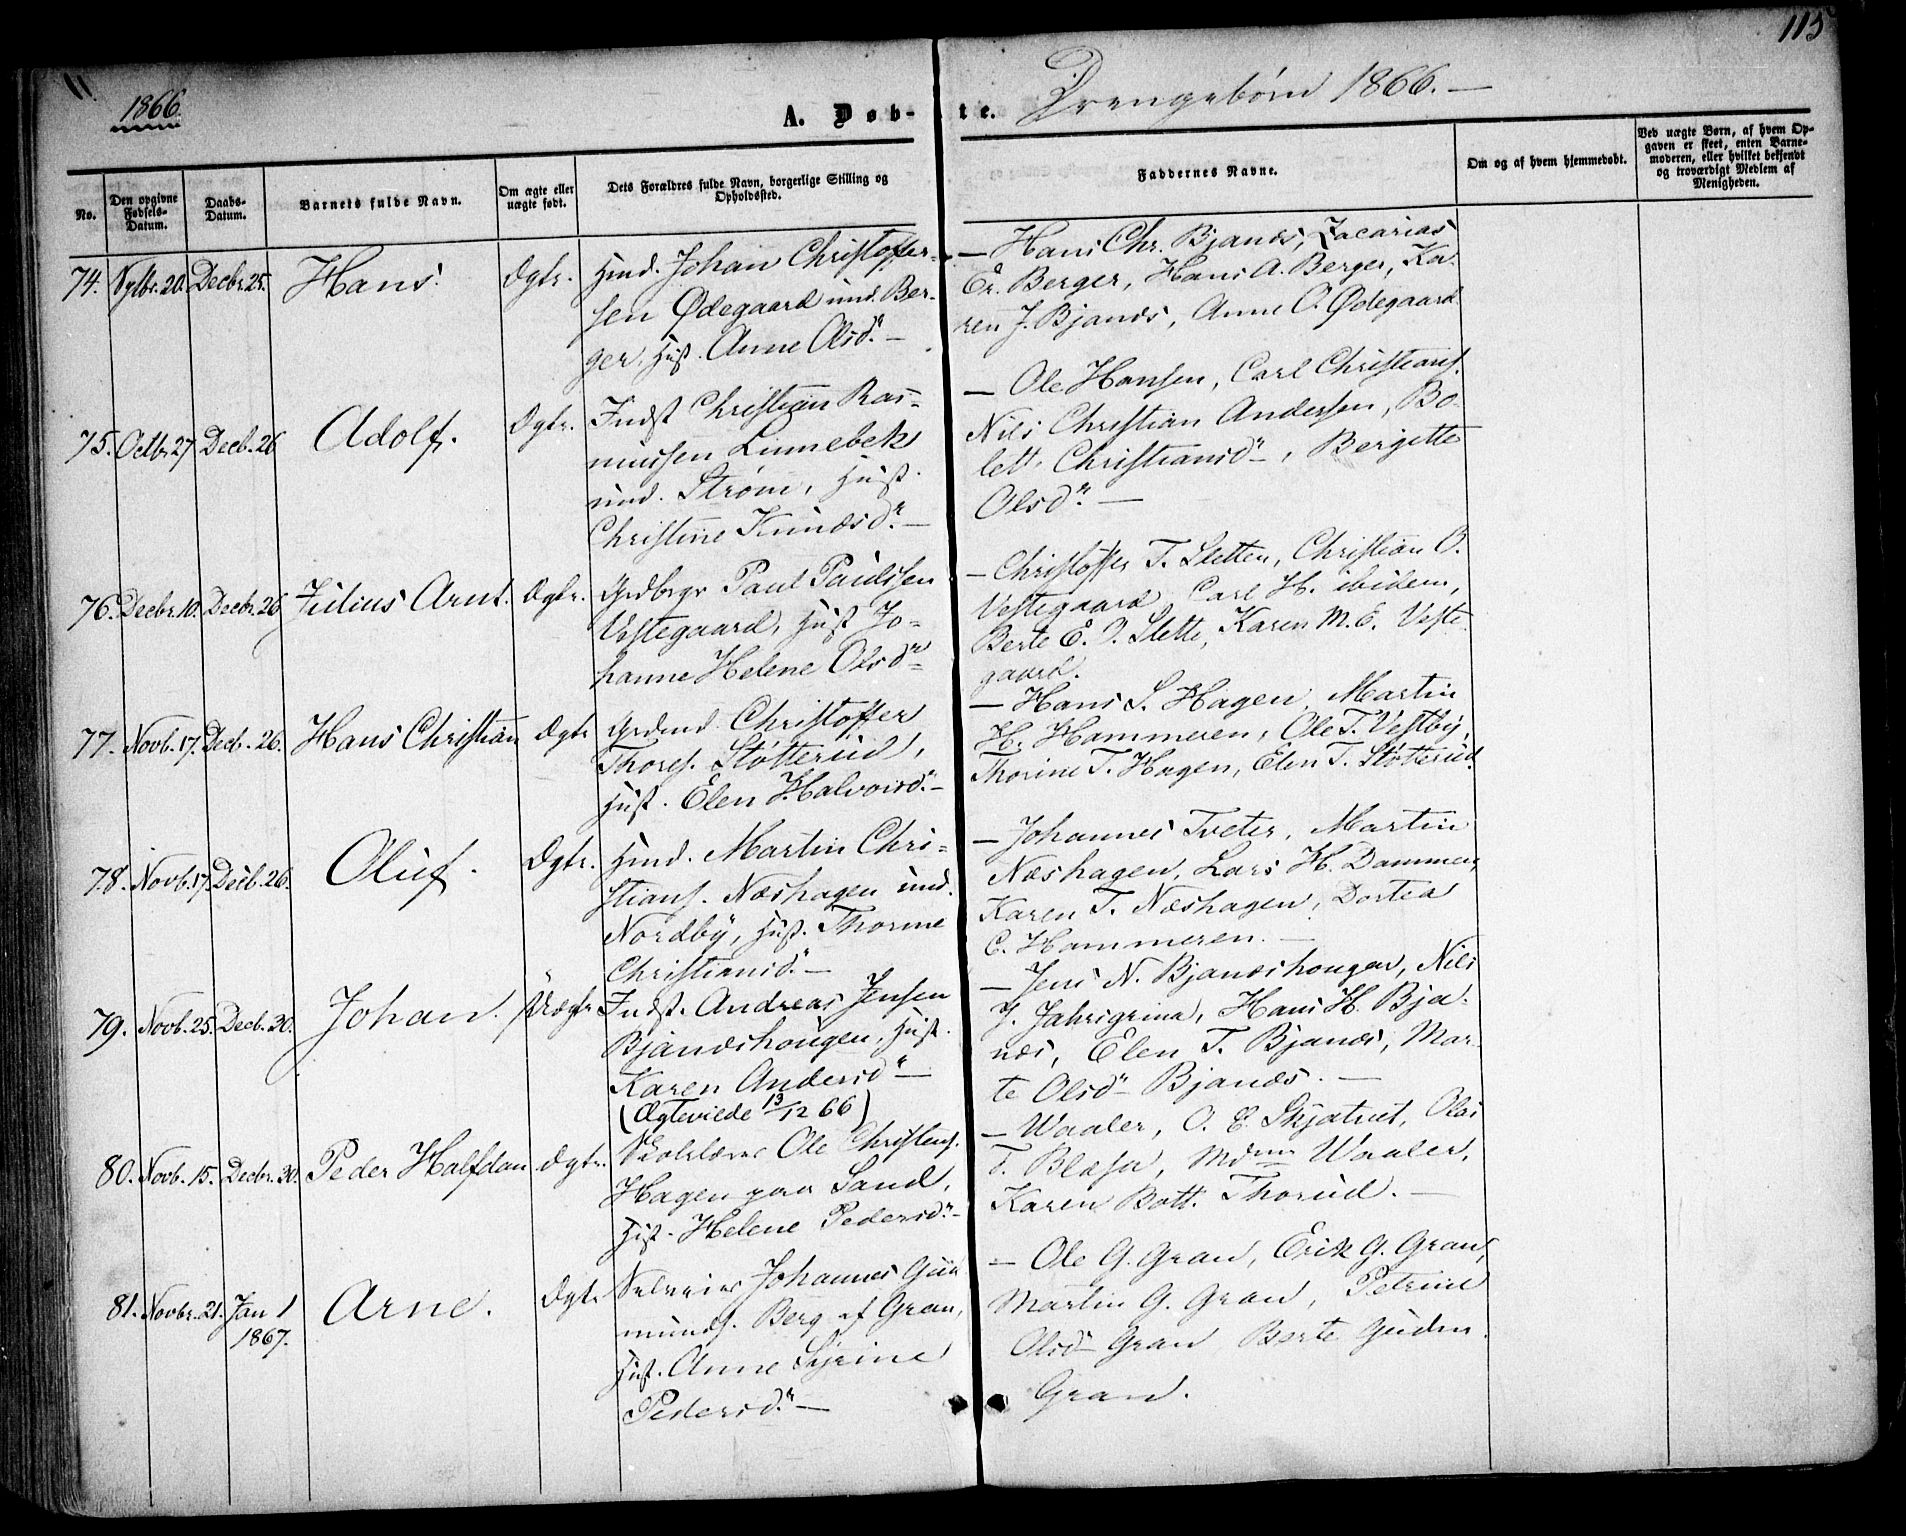 115
1866.
A. Døbte.
Drengebørn 1866. —
No.
Den opgivne Fødsels-Datum.
Daabs-Datum.
Barnets fulde Navn.
Om ægte eller uægte født.
Dets Forældres fulde Navn, borgerlige Stilling og Opholdssted.
Faddernes Navne.
Om og af hvem hjemmedøbt.
Ved uægte Børn, af hvem Opgaven er skeet, enten Barnemoderen, eller hvilket bekjendt og troværdigt Medlem af Menigheden.
74. Septbr. 20. Decbr. 25. Hans. Ægte.
Husmd. Johan Christoffer-
sen Ødegaard und. Ber-
ger, Hust. Anne Olsdr. —
— Hans Chr. Bjanes, Zacarias
Er. Berger, Hans A. Berger, Ka-
ren J. Bjanes, Anne O. Ødegaard.
75. Octbr. 27. Decb. 26 Adolf. Ægte.
Indst Christian Ras-
mussen Linnebek
und. Strøm, Hust.
Christine Knudsdr. —
— Ole Hansen, Carl Christians.
Nils Christian Andersen, Bo-
lett. Christiansdr., Bergitte
Olsdr. —
76. Decbr. 10. Decbr. 26 Julius Arnt. Ægte.
Grdbrgr Paul Paulsen
Vestegaard, Hust Jo-
hanne Helene Olsdr.
— Christoffer T. Sletten, Christian O.
Vestegaard Carl H. ibidem,
Berte E. P. Slette, Karen M. E. Veste-
gaard.
77. Novb. 17. Decb. 26. Hans Christian Ægte
Grdmd. Christoffer
Thores. Støtterud,
Hust. Elen Halvorsdr. —
— Hans S. Hagen, Martin
H. Hammeren, Ole T. Vestby,
Thorine T. Hagen, Elen T. Støtterud
78. Novb. 17. Decb. 26. Oluf. Ægte.
Husmd. Martin Chri-
stians. Næshagen und.
Nordby, Hust. Thorine
Christiansdr. —
— Johannes Tveter, Martin
Næshagen, Lars H. Dammen,
Karen T. Næshagen, Dortea
C. Hammeren. —
79. Novb. 25. Decb. 30. Johan. Uægte
Indst. Andreas Jensen
Bjaneshougen, Hust.
Karen Andersdr —
(Ægteviede 13/12 66)
— Jens N. Bjaneshougen, Nils
J. Jahrsgrina, Hans H. Bja-
nes, Elen T. Bjanes, Mar-
te Olsdr Bjanes. —
80. Novb. 15. Decbr. 30. Peder Halfdan Ægte.
Skolelærer Ole Christens.
Hagen paa Sand,
Hust. Helene Pedersdr. —
— Waaler, O. E. Skjatvet, Olai
T. Blæsa, Mdme Waaler,
Karen Bott. Thorud. —
81. Novbr. 21. Jan 1 Arne. Ægte
1867.
Selveier Johannes Gud-
munds. Berg af Gran,
Hust. Anne Sirine
Pedersdr. —
— Ole G. Gran, Erik G. Gran,
Martin G. Gran, Petrine
Olsdr Gran Berte Gudm.
Gran.